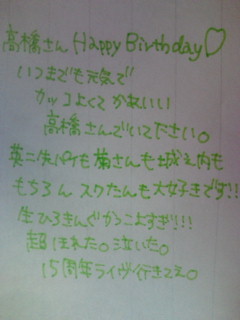 高橋さん Happy Birthday♡
いつまでも元気で
カッコよくて かわいい
高橋さんでいてださい。
英二先パイも菊さんも城之内も
もちろん スクたんも大好きです!!
生ひろきんぐかっこよすぎ!!!
超ほれた。泣いた。
15周年ライヴ行きてえ。